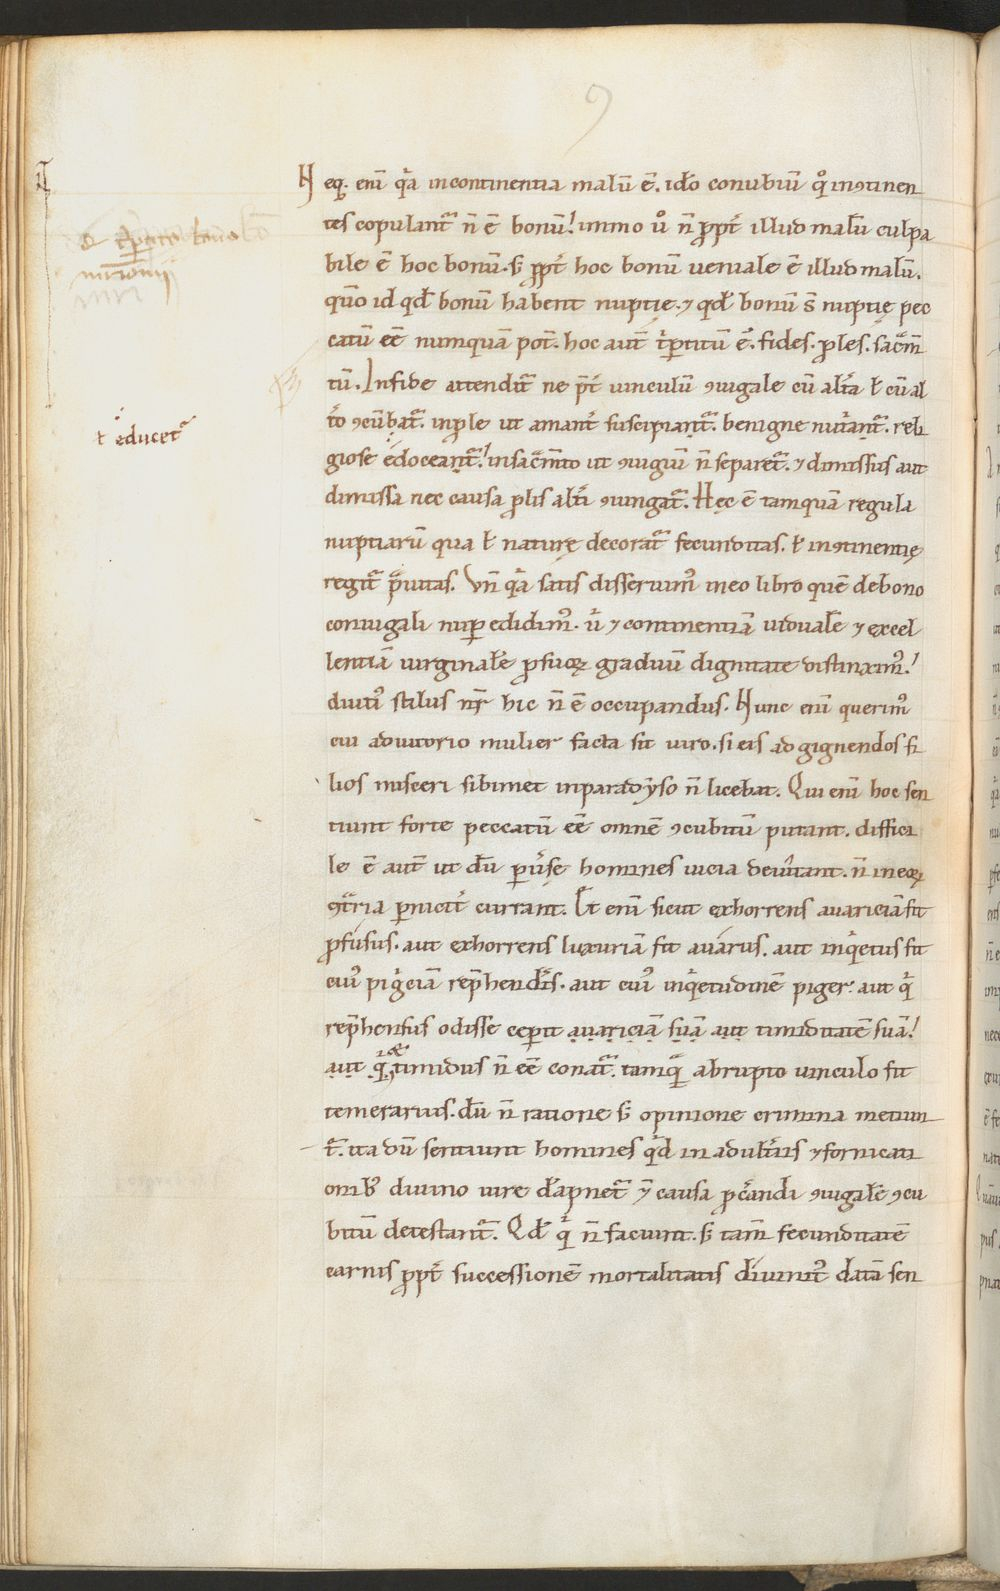 9
Neq; eni̅ qͥa incontinentia malu̅ e̅. ido̅ conubiu̅ qͦ in9tinen
tes copulant᷑ n̅ e̅ bonu̅! immo uͦ n̅ ꝓpt̾ illud malu̅ culpa
bile e̅ hoc bonu̅. s; ꝓpt̾ hoc bonu̅ ueniale e̅ illud malu̅.
Qm̅o id qd̅ bonu̅ habent nuptię. ⁊ qd̅ bonu̅ s̅ nuptię pec
catu̅ ee̅ numqua̅ pot̅. hoc aut̅ tͥꝑtitu̅ e̅. fides. ꝓles. sac̅m
tu̅. In fide attendit᷑ ne p̅t̾ uinculu̅ 9iugale cu̅ alt̾a ł cu̅ al
t̾o 9cu̅bat᷑. in ꝓle ut amant̾ suscipiant᷑. benigne nut̾ant᷑. reli
giose edoceant᷑! in sac̅m̅to ut 9iugiu̅ n̅ separet᷑. ⁊ dimissus aut
dimissa nec causa ꝓlis alt̾i 9iungat᷑. Hęc e̅ tamqua̅ regula
nuptiaru̅ qua ł naturę decorat᷑ fecunditas. ł in9tinentię
regit᷑ pͣuitas. Vn̅ qͥa satis disseruim᷒ in eo libro que̅ de bono
coniugali nuper edidim᷒. u̾ ⁊ continentia̅ uidual̅e ⁊ excel
lentia̅ uirginal̅e ꝓ suoꝝ graduu̅ dignitate distinxim᷒!
diuti᷒ stilus nr̅ hic n̅ e̅ occupandus. Nunc eni̅ querim᷒
cui adiutorio mulier facta sit uiro. si eis ad gignendos fi
lios misceri sibimet in paradyso n̅ licebat. Qui eni̅ hoc sen
tiunt forte peccatu̅ ee̅ omne̅ 9cubitu̅ putant. diffici
le e̅ aut̅ ut du̅ ꝑu̾se homines uicia deuitant. n̅ in eoꝝ
9tͣria ꝑnicit̾ currant. Ut eni̅ sicut exhorrens auaricia̅ fit
ꝓfusus. aut exhorrens luxuria̅ fit auarus. aut inqͥetus fit
cui᷒ pigͥcia̅ rep̅hendis̾. aut cui᷒ inqͥetudine̅ piger. aut qͥ
rep̅hensus odisse ceperit auaricia̅ sua̅ aut timiditate̅ sua̅!
aut qͥ timidus n̅ ee̅ conat᷑. tamqͣ abrupto uinculo fit
temerarius. du̅ n̅ ratione s; opinione crimina metiun
t᷑. ita du̅ sentiunt homines qͥd in adult̾iis ⁊ fornicati
onib; diuino iure da̅pnet᷑ ⁊̅ causa ꝓc̾andi 9iugal̅e 9cu
bitu̅ detestant᷑. Qd̅ qͥ n̅ faciunt. s; tam̅ fecunditate̅
carnis ꝓpt̾ successione̅ mortalitatis diuinit᷒ data̅ sen
ł educet᷑